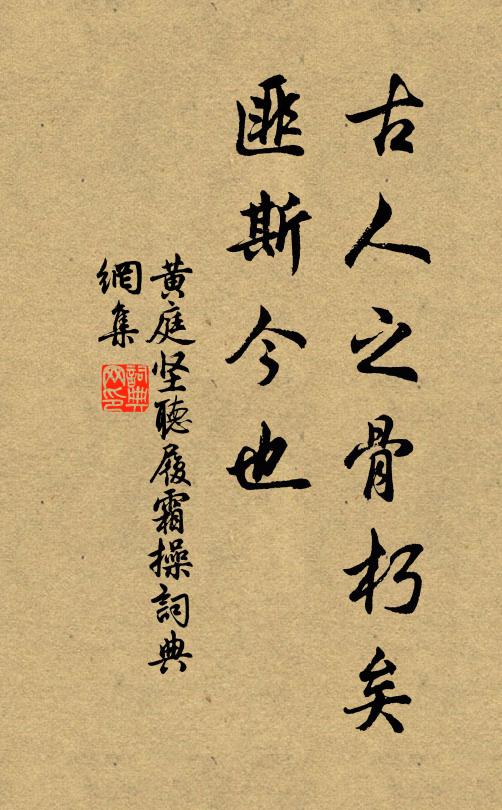 古人之骨朽矣
匪斯今也
黄庭坚聽履霜操詞典
網集
詞典
网印